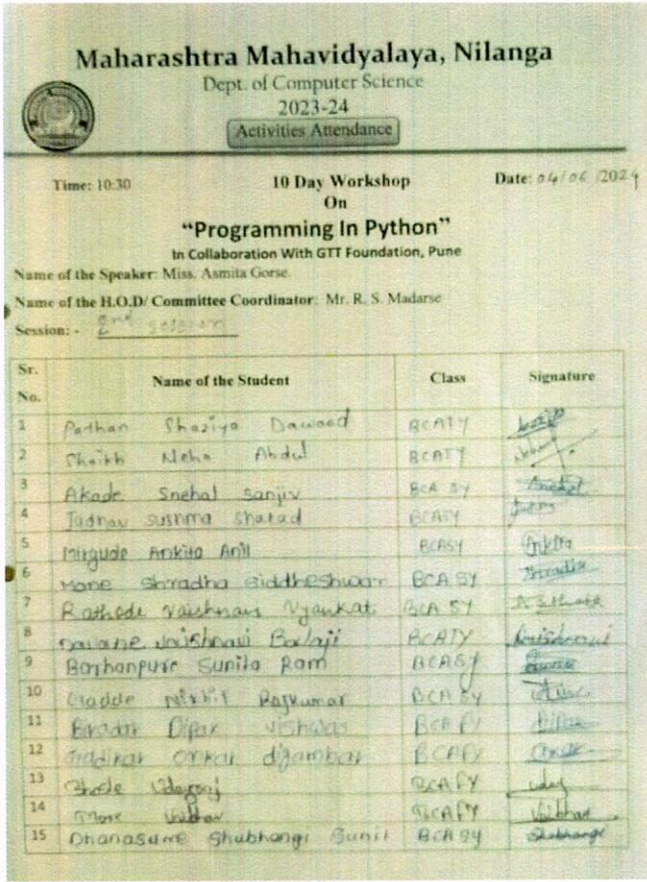 Maharashtra Mahavidyalaya, Nilanga
Dept. of Computer Science
2023-24
Activities Attendance
Time: 10:30 10 Day Workshop Date: 04/06/2024
On
“Programming In Python”
In Collaboration With GTT Foundation, Pune
Name of the Speaker: Miss. Asmita Gorse.
Name of the H.O.D/ Committee Coordinator: Mr. R. S. Madarse
Session: - 2nd session
Sr. No. Name of the Student Class Signature
1 Pathan Shaziya Dawood BCATY
2 Shaikh Neha Abdul BCATY
3 Akade Snehal Sanjiv BCA SY
4 Jadhav sushma sharad BCATY
5 Mirgude Ankita Anil BCASY Ankita
6 Mane Shradha Siddheshwar BCA SY
7 Rathode Vaishnavi Vyankat BCA SY
8 Vaishnavi Balaji BCATY Vaishnavi
9 Barhanpure Sunita Ram BCASY
10 Gadde Nikhil Rajkumar BCA SY
11 Biradar Dipak vishwas BCA FY Dipak
12 Gadikar Onkar digambar BCAFY
13 Udayraj BCAFY uday
14 More Vaibhav BCAFY Vaibhav
15 Dhanasure Shubhangi Sunil BCA SY Shubhangi